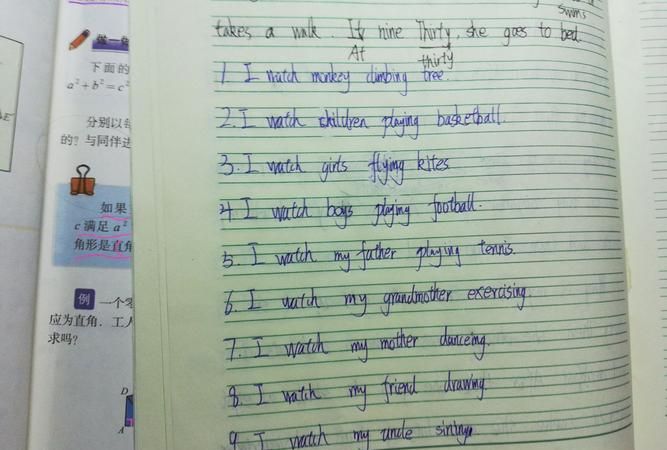 swims
takes a walk. It nine Thirty, she goes to bed.
At thirty
1. I watch monkey climbing tree.
2. I watch children playing basketball.
3. I watch girls flying kites
4 I watch boys playing football.
5. I watch my father playing tennis.
6. I watch my grandmother exercising.
7. I watch my mother danceing.
8. I watch my friend drawing
9. I watch my uncle
做一做
下面的
a²+b²=c²
分别以每
的？与同伴进
如果
c 满足 a²
角形是直角
例 一个零
应为直角．工人
求吗？
D
A
E